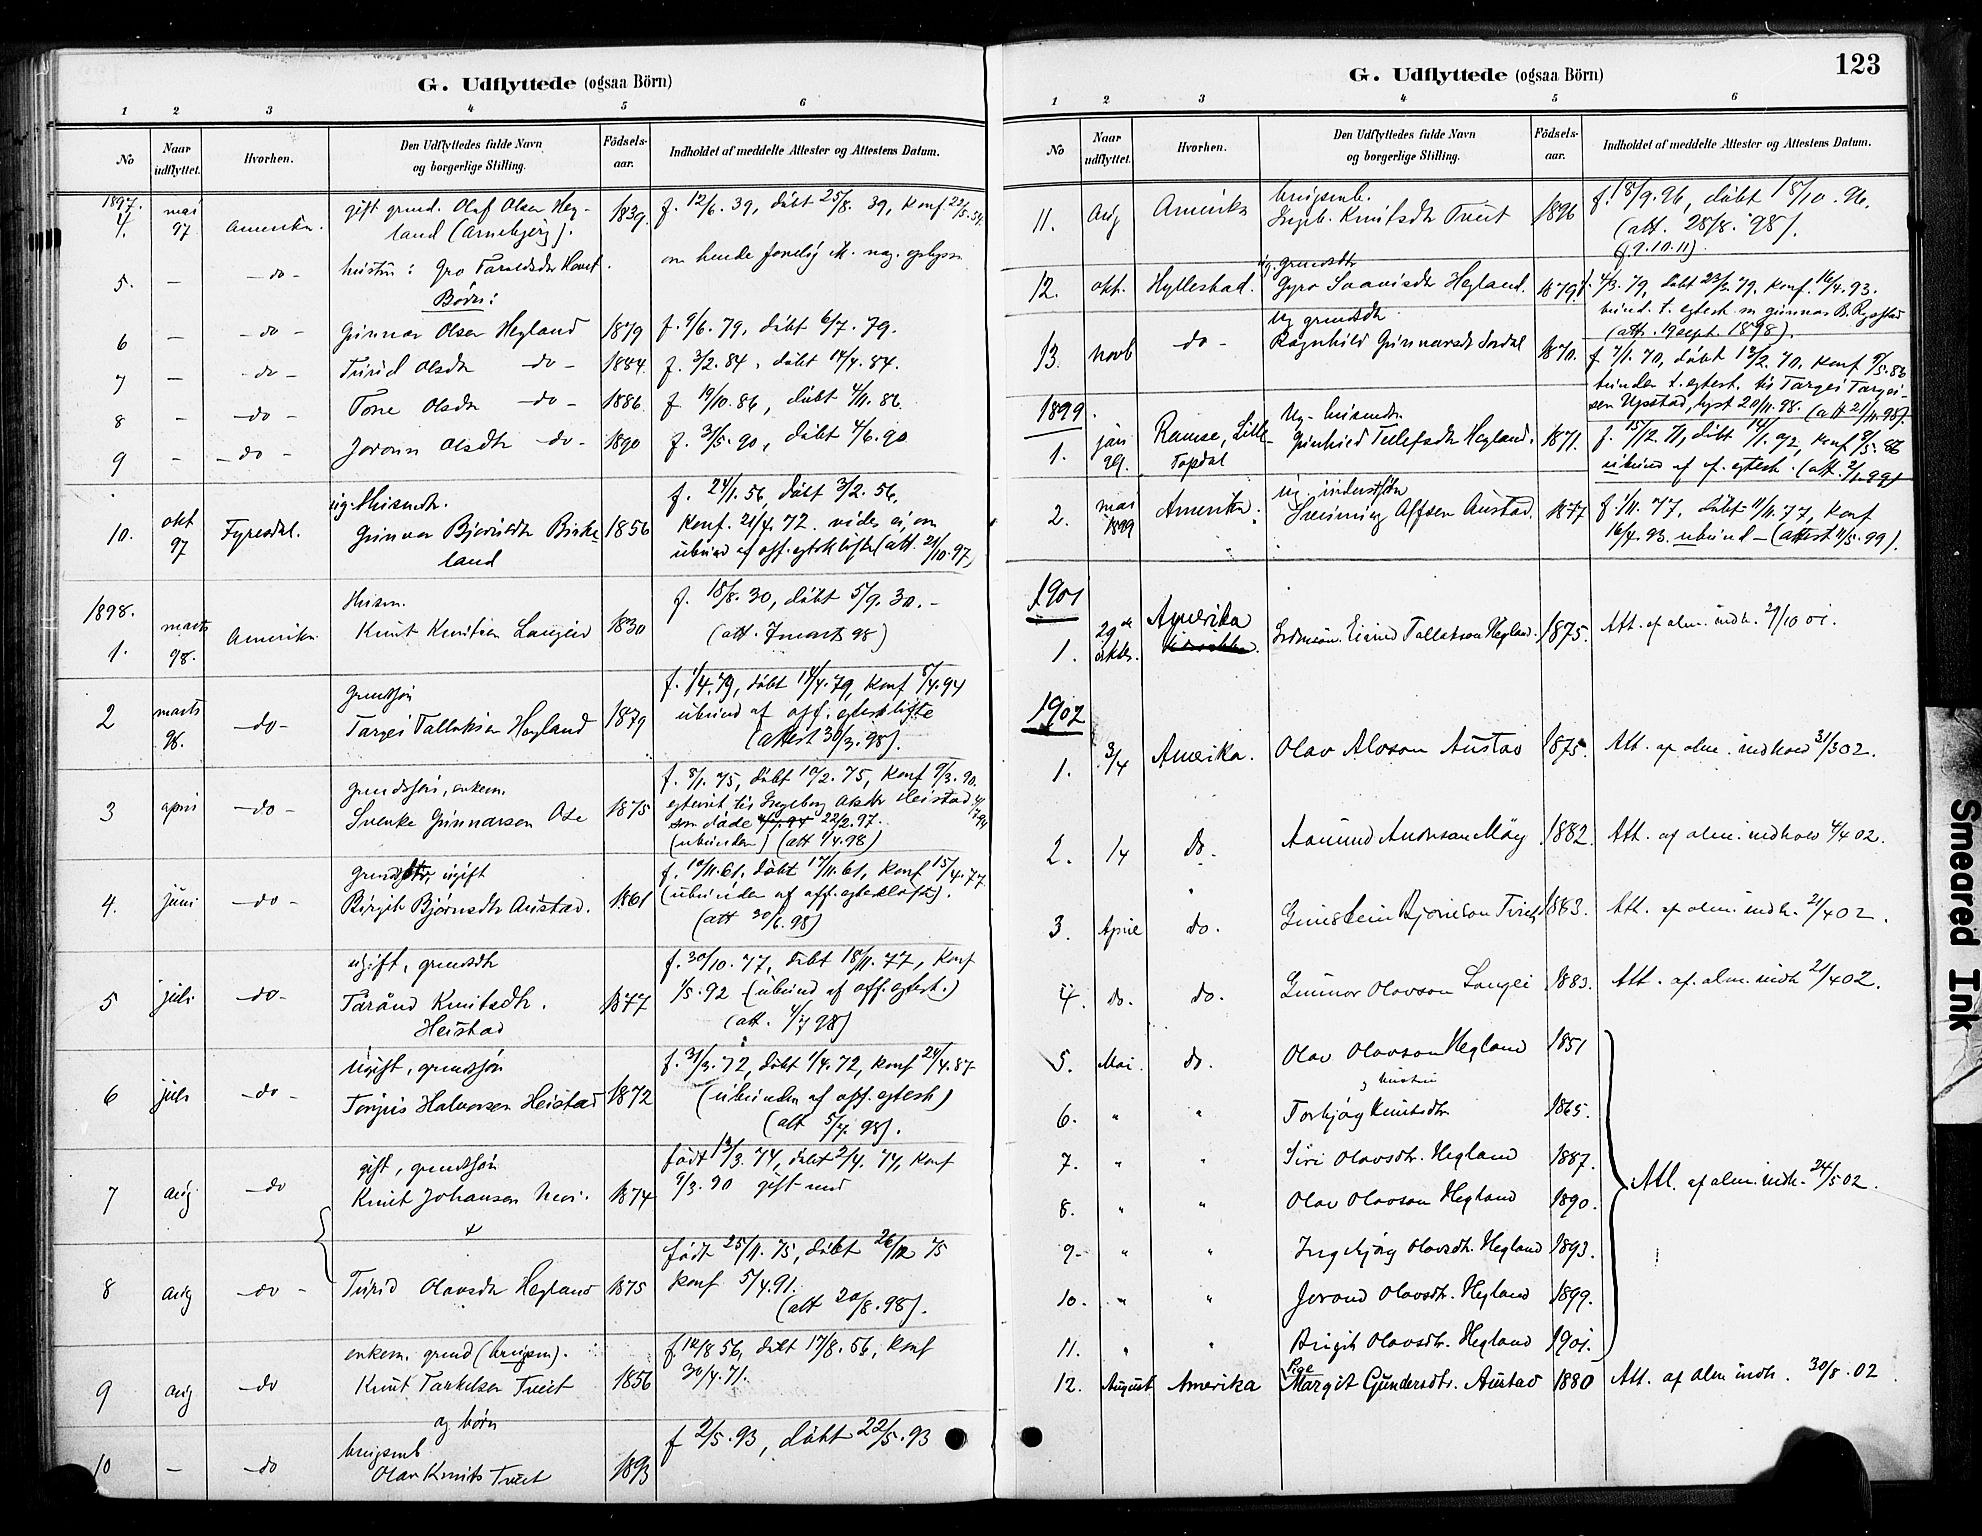 G. Udflyttede (ogsaa Börn)
1 2 3 4 5 6
No
Naar udflyttet.
Hvorhen.
Den Udflyttedes fulde Navn og borgerlige Stilling.
Födsels-aar.
Indholdet af meddelte Attester og Attestens Datum.
1897.
4. mai 97 Amerika. gift grund. Olaf Olsen Hegland (Arnebjerg). 1839. f. 12/6. 39, døbt 25/8. 39, Konf.
5. — —do— hustru: Gro Taraldsdtr
Børn:
6 — —do— Gunnar Olsen Hegland 1879 f. 9/6. 79, døbt 6/7. 79.
7 — —do— Turid Olsdtr —do— 1884. f. 3/2. 84, døbt 14/4. 84.
8 — —do— Tone Olsdtr —do— 1886. f 19/10. 86, døbt 4/11. 86.
9 — —do— Jorønn Olsdtr —do— 1890 f. 31/5. 90, døbt 4/6. 90
10. okt 97 Fyresdal. ug. Huismdtr. Gunvor Bjørnsdtr Birkeland 1856 f. 24/1. 56, døbt 3/2. 56,
Konf. 21/4. 72. vides ei, om
ubund af off. egteskløfte (att. 21/10. 97)
1898.
1. marts 98. Amerika Huism. Knut Knutsen Langeid 1830 f. 18/8. 30, døbt 5/9. 30. –
(att. 7 marts 98)
2 marts 98. —do— grundsøn Targei Tallaksen Hegland 1879 f. 1/4. 79, døbt 14/4. 79, Konf 8/4. 94
ubund af off. egtesk.løfte
(attest 30/3. 98).
3 april —do— grundsøn, enkem. Svenke Gunnarsen Ose 1875 f. 8/1. 75, døbt 10/2. 75, Konf 9/3. 90.
egteviet til Ingeborg Heistad
som døde 22/2. 97.
(ubunden) (att 1/4. 98)
4. juni —do— ugift Birgit Bjørnsdtr Austad. 1861 f. 10/11. 61, døbt 17/11. 61, Konf 15/4. 77
(ubunden af off. egteskløfte).
(att 30/6. 98)
5 juli —do— ugift, grundsdtr Tarånd Knutsdtr. Heistad 1877 f. 30/10. 77, døbt 18/11. 77, Konf
1/5. 92 (ubund af off. egtesk.)
(att. 4/7 98)
6 juli —do— Ugift, grundsøn Torjus Halvorsen Heistad 1872 f. 31/3. 72, døbt 1/4. 72, Konf 24/4. 87
(ubunden af off. egtesk)
(att 5/7. 98).
7 aug —do gift, grundsøn Knut Johansen 1874 født 13/3. 74, døbt 2/4. 74, Konf
9/3. 90 gift med
8 aug —do— Turid Olavsdtr Hegland 1875 født 25/11. 75, døbt 26/12 75
Konf 5/4 91.
(att 20/8. 98).
9 aug —do enkem. grund (brugsm). Knut Tarkelsen Tveit 1856 f 12/8 56, døbt 17/8. 56, Konf
30/4. 71.
og børn
10 — —do brugsmb Olav Knuts Tveit 1893 f 2/5. 93, døbt 22/5. 93
G. Udflyttede (ogsaa Börn)
123
1 2 3 4 5 6
No
Naar udflyttet.
Hvorhen.
Den Udflyttedes fulde Navn og borgerlige Stilling.
Födsels-aar.
Indholdet af meddelte Attester og Attestens Datum.
11. Aug Amerika brugsmb. Ingeb. Knutsdtr Tveit 1896 f. 18/9. 96, døbt 18/10. 96.
(att. 28/8. 98).
(f 9. 10. 11)
12. okt. Hyllestad. ug. grundsdtr Gyro Saavisdtr Hegland. 1879 f. 4/3. 79, døbt 23/3. 79. Konf. 16/4. 93.
bund. t. egtesk m gunnar B. Rysstad
(att. 19 sept. 1898).
13. novb do— Ug grundsdtr Ragnhild Gunnarsd 1870. f 7/1. 70, døbt 13/2. 70, Konf 9/5. 86
bunden t. egtesk. til Targei Targeisen Upstad, lyst 20/11. 98. (att 21/11. 98)
1899.
1. jan 29. Lille Topdal Ug. huismdtr Gunhild Tellefsdtr Hegland. 1871. f. 15/12. 71, døbt 14/1. 72, Konf 9/5. 86
ubund af of. egtesk. (att. 2/1. 99)
2. mai 1899 Amerika. Austad. 1877 f 1/11. 77, døbt 11/11. 77, Konf
16/4. 93. ubund — (attest 11/5. 99).
1901
1. 29de oktbr. Amerika Eivind Tallakson Hegland. 1875. Att. af alm. indh. 29/10 01.
1902
1. 3/4 Amerika. Olav Alvson Austad 1875. Att. af alm. indhold 31/3 02.
2. 14 do. Aamund 1882. Att. af alm. indhold 4/4 02.
3. April do. Gunstein Bjørnson Tveit 1883. Att. af alm. indh. 21/4 02.
4. do. do. Gunnar Olavson Langei 1883. Att. af alm. indh 21/4 02.
5. Mai. do. Olav Olavson Hegland 1851
og hustru
6. " " Torbjørg Knutsdtr 1865.
7. " " Siri Olavsdtr. Hegland 1887. Att. af alm. indh. 24/5 02.
8. " " Olav Olavson Hegland 1890.
9. " " Ingebjørg Olavsdtr. Hegland 1893.
10. " " Jorand Olavsdtr. Hegland 1899.
11. " " Birgit Olavsdtr. Hegland 1901.
12. August Amerika Pige Margit Gundersdtr. Austad 1880 Att. af alm indh. 30/8. 02
Smeared Ink